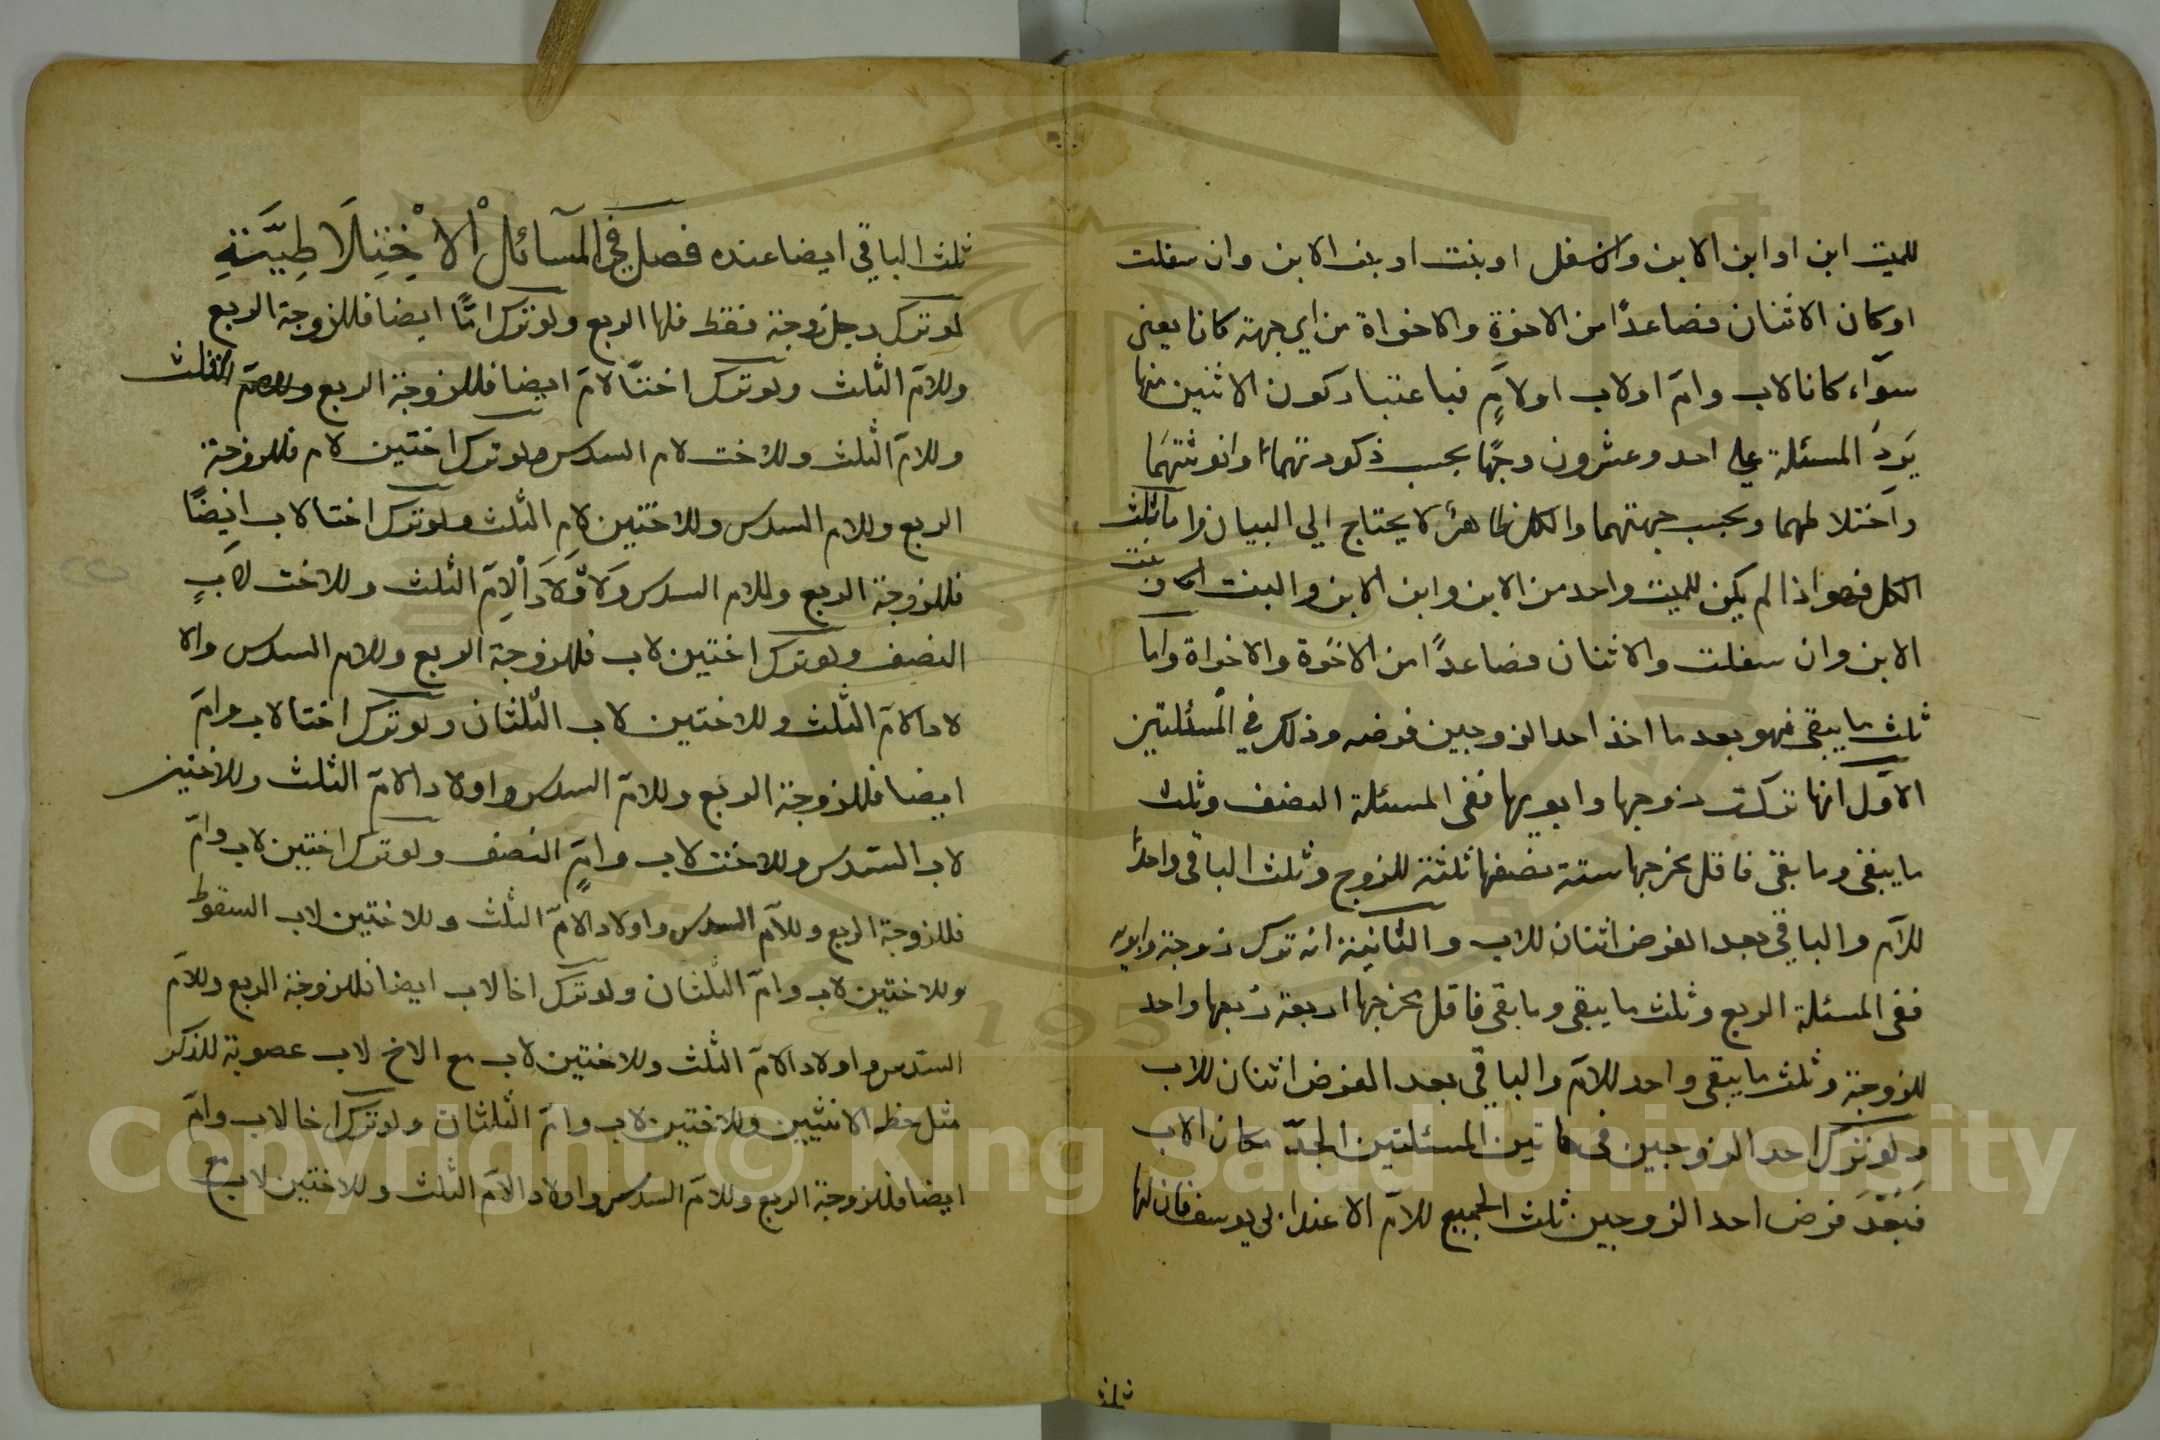 للميت ابن او ابن الابن وان سفل او بنت او بنت الابن وان سفلت
او كان الاثنان فصاعدًا من الاخوة والاخواة من اي جهة كانا يعنى
سوآء كانا لاب وامّ او لاب او لامٍّ فباعتبار كون الاثنين منها
يَرِدُ المسئلة على احد وعشرون وجهًا بحسب ذكورتهما وانوثتهمَا
واختلاطهما وبحسب جهتهما والكل ظاهرٌ لا يحتاج الي البيان واما ثلث
الكل فهو اذا لم يكن للميت واحد من الابن وابن الابن والبنت وبنت
الابن وان سفلت والاثنان فصاعدًا من الاخوة والاخواة وامّا
ثلث ما يبقى فهو بعد ما اخذ احد الزوجين فرضه وذلك في المسئلتين
الاوّل انها تركت زوجها وابويها ففى المسئلة النصف وثلث
ما يبقى وما بقى فاقل مخرجها ستة نصفها ثلثة للزوج وثلث الباقى واحدٌ
للآم والباقي بعد الفرض اثنان للاب والثانية انه ترك زوجة وابويه
ففى المسئلة الربع وثلث ما يبقى وما بقى فاقل مخرجها اربعة رُبعها واحد
للزوجة وثلث ما يبقى واحد للامّ والباقي بعد الفرض اثنان للاب
ولو ترك احد الزوجين فى هاتين المسئلتين الجدّ مكان الاب
فبَعْدَ فرض احد الزوجين ثلث الجميع للآمّ الا عند ابى يوسف فان لها
ثلث
ثلث الباقي ايضا عنده فصل في المسائل الاختلاطيّة
لو ترك رجل زوجة فقط فلها الربع ولو ترك امًّا ايضا فللزوجة الربع
وللامّ الثلث ولو ترك اختًا لامّ ايضا فللزوجة الربع وللامّ الثلث
وللامّ الثلث وللاخت لام السدس ولو ترك اختين لام فللزوجة
الربع وللام السدس وللاختين لام الثلث ولو ترك اختا لاب ايضًا
فللزوجة الربع وللام السدس ولاولاد الامّ الثلث وللاخت لابٍ
النصف ولو ترك اختين لاب فللزوجة الربع وللام السدس ولاو
لاد الامّ الثلث وللاختين لاب الثلثان ولو ترك اختا لاب وامّ
ايضا فللزوجة الربع وللامّ السدس واولاد الامّ الثلث وللاختين
لاب السّدس وللاخت لاب وامٍّ النصف ولو ترك اختين لاب وامّ
فللزوجة الربع وللآم السدس واولاد الامّ الثلث وللاختين لاب السقوط
وللاختين لاب وامّ الثلثان ولو ترك اخا لاب ايضا فللزوجة الربع وللآمّ
السّدس واولاد الامّ الثلث وللاختين لاب مع الاخ لاب عصوبة للذكر
مثل حظ الانثيين وللاختين لاب وامّ الثلثان ولو ترك اخا لاب وامّ
ايضا فللزوجة الربع وللامّ السدس واولاد الآمّ الثلث وللاختين لاب مع
Copyright © King Saud University
1957